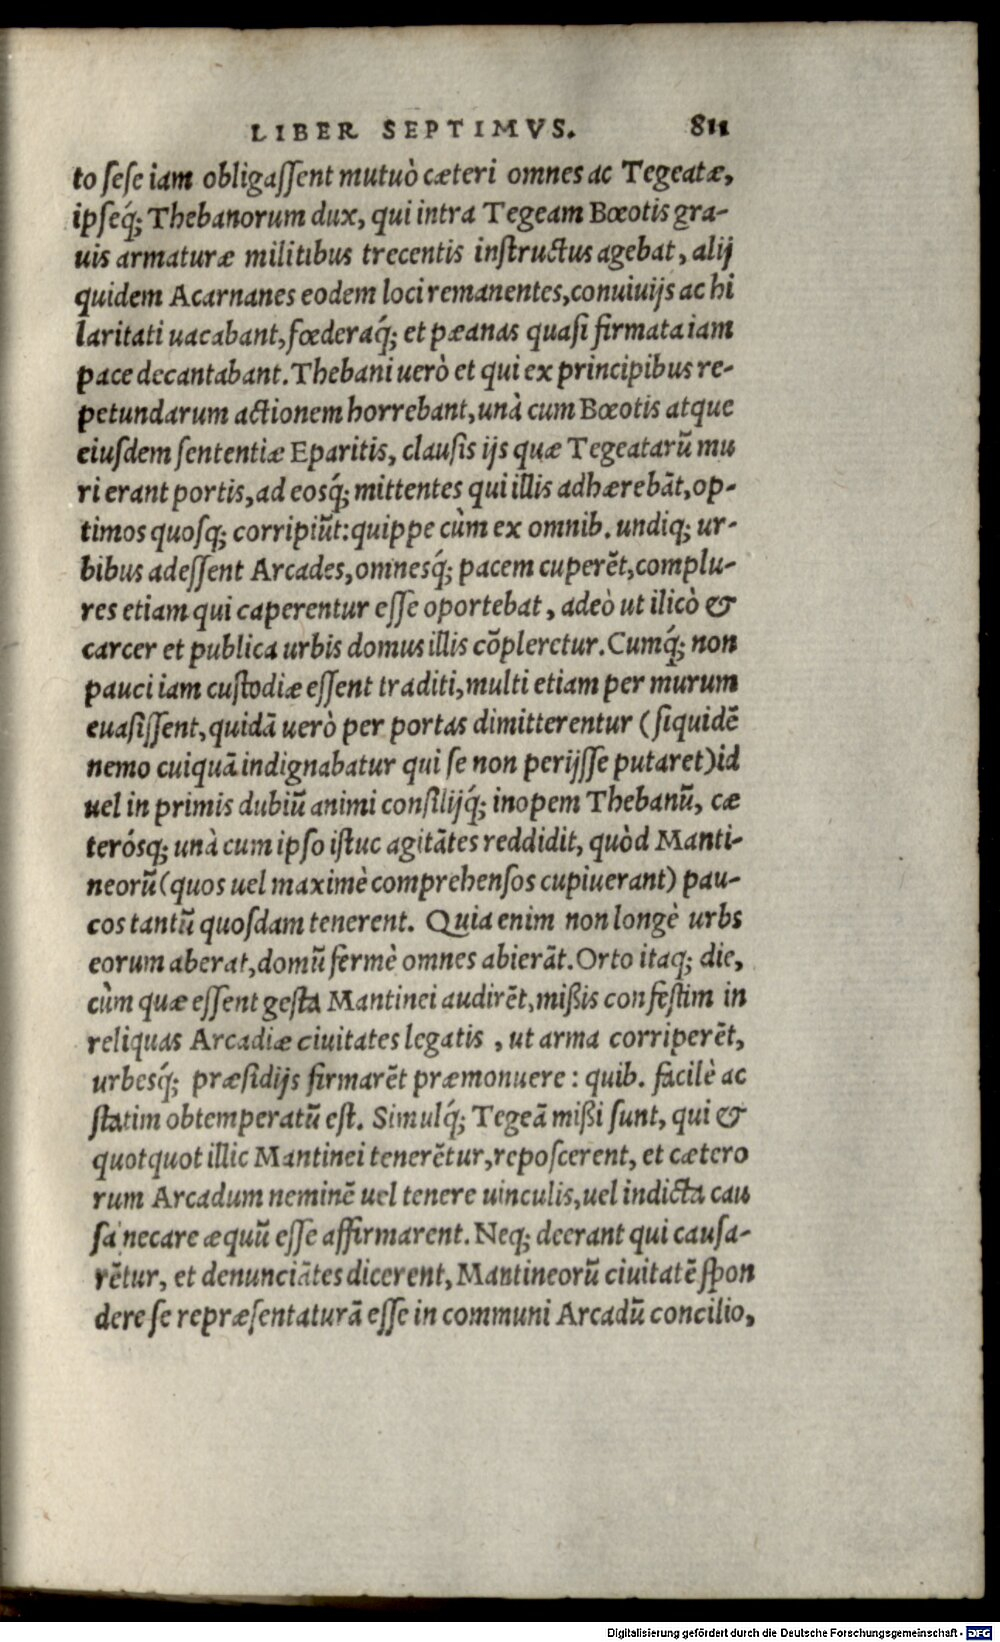 LIBER SEPTIMVS. 811
to sese iam obligassent mutuò cæteri omnes ac Tegeatæ,
ipseq́; Thebanorum dux, qui intra Tegeam Bœotis gra-
uis armaturæ militibus trecentis instructus agebat, alij
quidem Acarnanes eodem loci remanentes, conuiuijs ac hi
laritati uacabant, fœderaq́; et pæanas quasi firmata iam
pace decantabant. Thebani uerò et qui ex principibus re-
petundarum actionem horrebant, unà cum Bœotis atque
eiusdem sententiæ Eparitis, clausis ijs quæ Tegeatarũ mu
ri erant portis, ad eosq́; mittentes qui illis adhærebãt, op-
timos quosq; corripiũt: quippe cùm ex omnib. undiq; ur-
bibus adessent Arcades, omnesq́; pacem cuperẽt, complu-
res etiam qui caperentur esse oportebat, adeò ut ilicò &
carcer et publica urbis domus illis cõpleretur. Cumq́; non
pauci iam custodiæ essent traditi, multi etiam per murum
euasissent, quidã uerò per portas dimitterentur (siquidẽ
nemo cuiquã indignabatur qui se non perijsse putaret) id
uel in primis dubiũ animi consilijq́; inopem Thebanũ, cæ
terósq; unà cum ipso istuc agitãtes reddidit, quòd Manti-
neorũ (quos uel maximè comprehensos cupiuerant) pau-
cos tantũ quosdam tenerent. Quia enim non longè urbs
eorum aberat, domũ fermè omnes abierãt. Orto itaq; die,
cùm quæ essent gesta Mantinei audirẽt, mißis confestim in
reliquas Arcadiæ ciuitates legatis, ut arma corriperẽt,
urbesq́; præsidijs firmarẽt præmonuere: quib. facilè ac
statim obtemperatũ est. Simulq́; Tegeã mißi sunt, qui &
quotquot illic Mantinei tenerẽtur, reposcerent, et cætero
rum Arcadum neminẽ uel tenere uinculis, uel indicta cau
sa necare æquũ esse affirmarent. Neq; deerant qui causa-
rẽtur, et denunciãtes dicerent, Mantineorũ ciuitatẽ spon
dere se repræsentaturã esse in communi Arcadũ concilio,
Digitalisierung gefördert durch die Deutsche Forschungsgemeinschaft - DFG